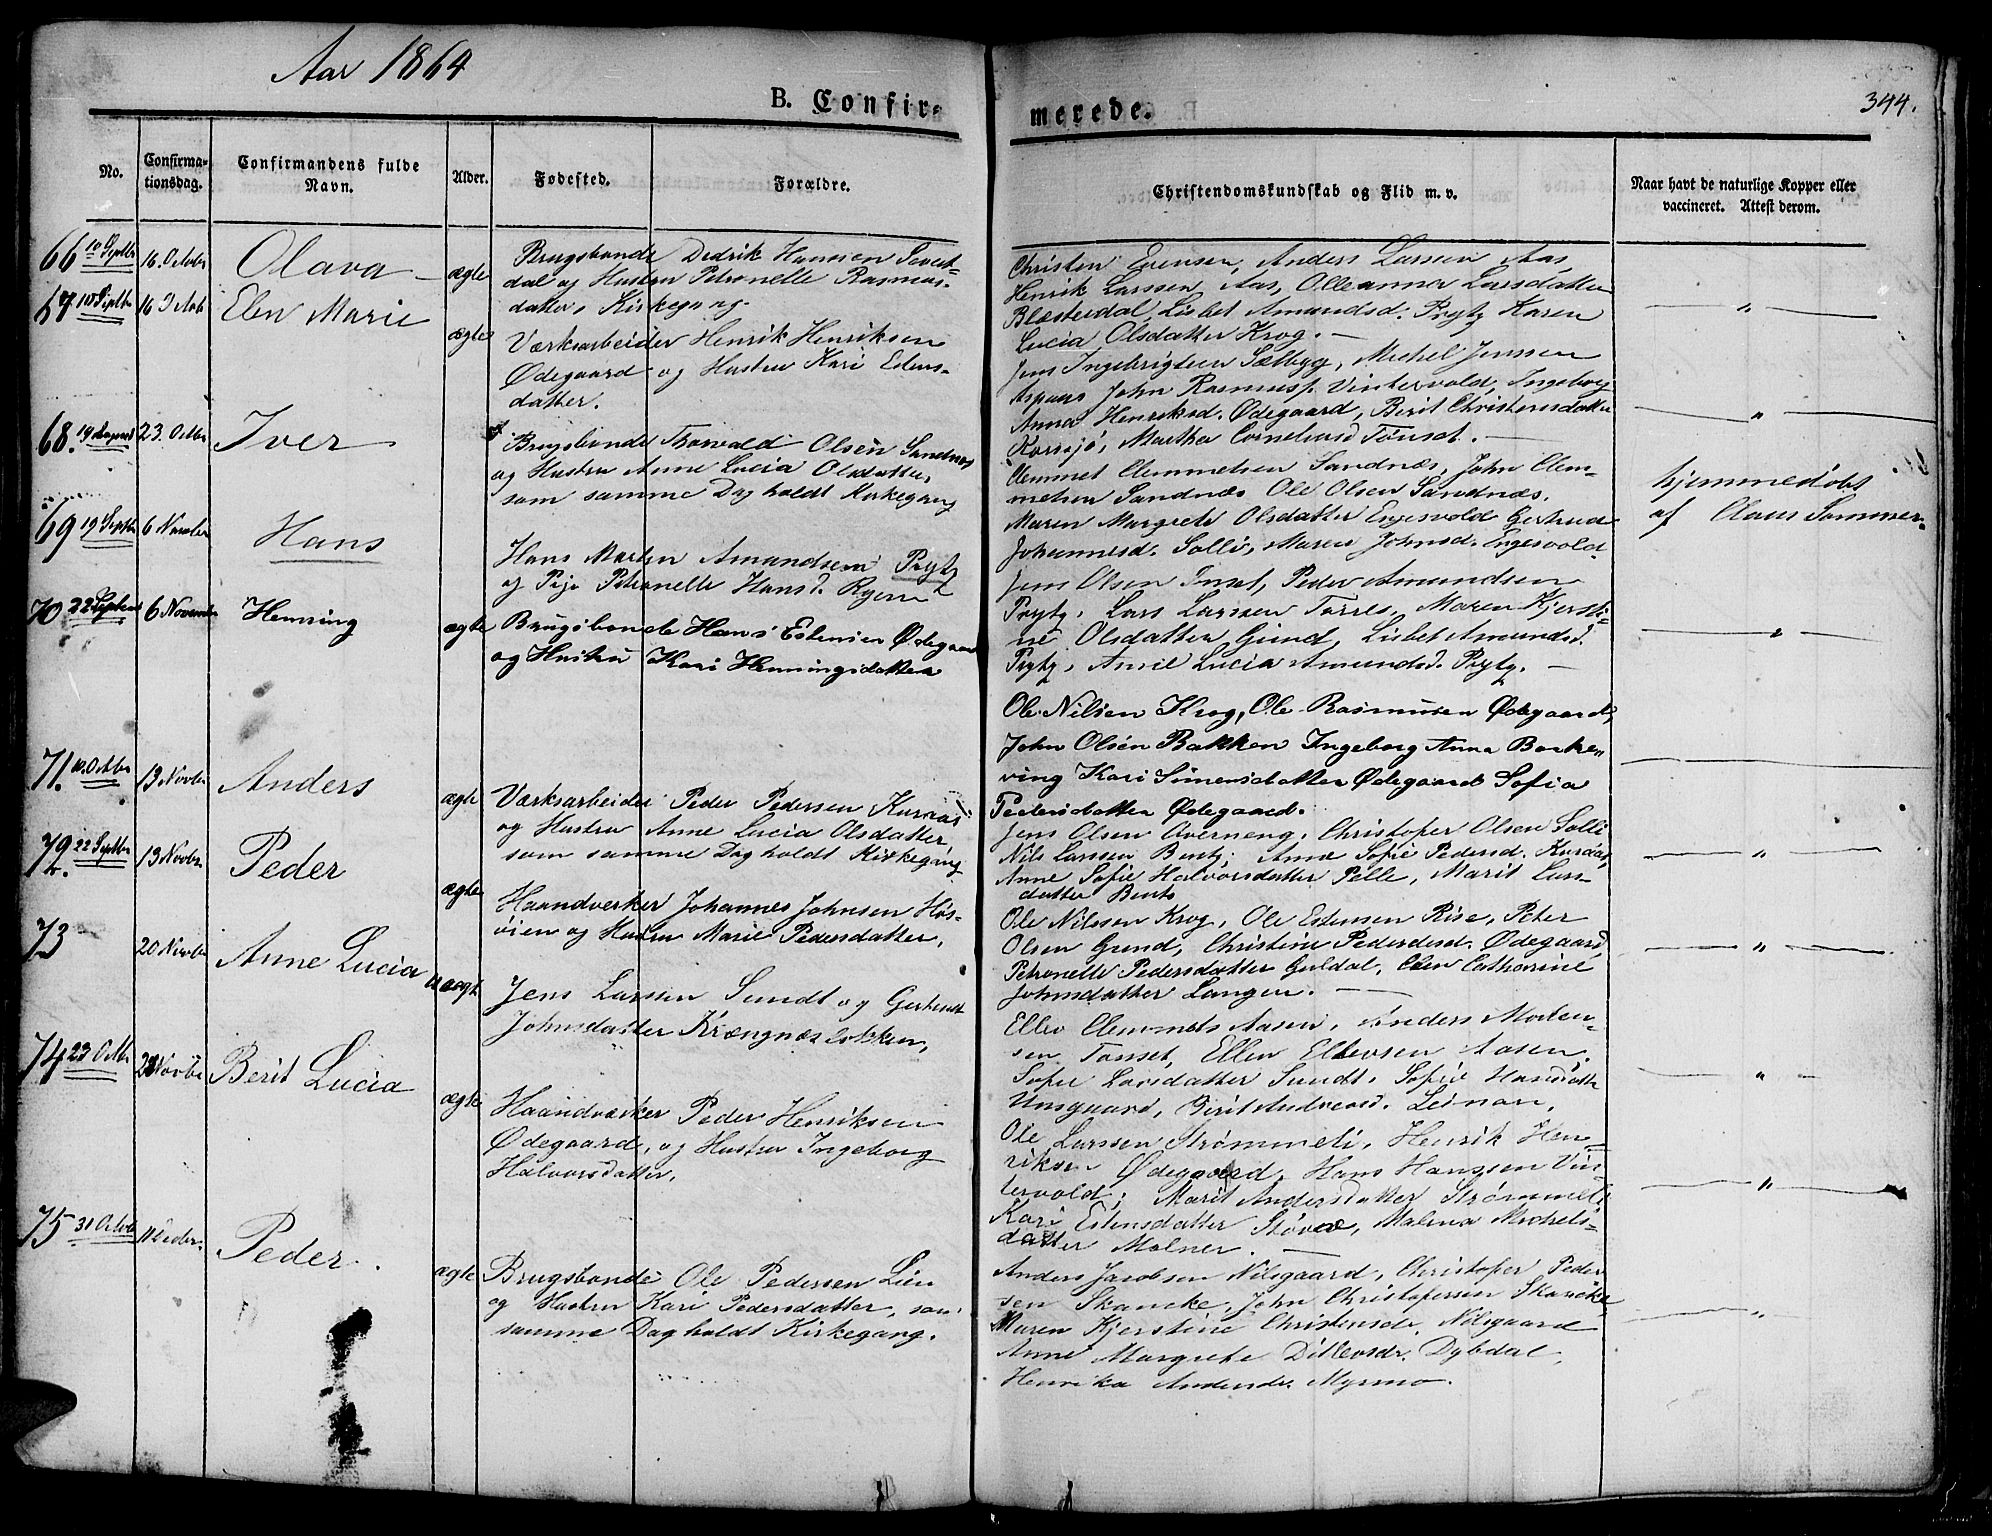 Aar 1864
B. Confir-
merede.
344.
No.
Confirma-
tionsdag.
Confirmandens fulde
Navn.
Alder.
Fødested.
Forældre.
Christendomskundskab og Flid m. v.
Naar havt de naturlige Kopper eller
vaccineret. Attest derom.
66 10 Septbr 16. Octobr Olava ægte
Brugsbonde Dedrik Hansen
dal og Hustru Petronelle Rasmus-
datter, Kirkegang
Christen Evensen, Anders Larssen Aas,
Henrik Larssen Aas, Olleanna Larsdatter
Blæsterdal, Lisbet Amundsd. Prytz Karen
Lucia Olsdatter Krog. —
— " —
67 10 Septbr 16 Octob Elen Marie ægte
Værksarbeider Henrik Henriksen
Ødegaard og Hustru Kari Estens-
datter.
Jens Ingebrigtsen Sætbyg, Michel Jenssen
Aspaas John Rasmuss. Vintervold, Ingeborg
Anna Henriksd. Ødegaard, Berit Christensdatter
Korssjø, Martha Corneliusd Tønset. —
— " —
68. 19 August 23. Octbr Iver
Brugsbonde Thorvald Olsen Sandnæs
og Hustru Anne Lucia Olsdatter,
som samme Dag holdt Kirkegang
Clemmet Clemmetsen Sandnæs, John Clem-
metsen Sandnæs Ole Olsen Sandnæs.
Maren Margrete Olsdatter Engesvold Gertrud
Johannesd. Solli, Maren Johnsd. Engesvold.
hjemmedøbt
af Claus Sommer.
69 19 Septbr 6 November Hans
Hans Morten Amundsen Prytz
og Pige Petronelle Hansd. Ryen
Jens Olsen Inset, Peder Amundsen
Prytz, Lars Larssen Torres, Maren Kjersti-
ne Olsdatter Grind, Lisbet Amundsd.
Prytz, Anne Lucia Amundsd. Prytz. —
— " —
70 22 Septembr 6 November Hemming ægte
Brugsbonde Hans Estensen Ødegaard
og Hustru Kari Hemingsdatter
Ole Nilsen Krog, Ole Rasmusen Ødegaard,
John Olsen Bakken Ingeborg Anna Borke
ving Kari Simensdatter Ødegaard Sofia
Pedersdatter Ødegaard.
71. 10. Octbr 13 Novbr Anders ægte
Værksarbeider Peder Pedersen Kuraas
og Hustru Anne Lucia Olsdatter,
som samme Dag holdt Kirkegang
Jens Olsen Averneng, Christofer Olsen Solli
Nils Larssen Bentz, Anne Sofie Pedersd. Kuraas,
Anne Sofie Halvorsdatter Pelle, Marit Lars-
datter Bents
— " —
72. 22 Septbr 13 Novbr. Peder ægte
Haandverker Johannes Johnsen Høs-
øien og Hustru Marie Pedersdatter,
Ole Nilssen Krog, Ole Estensen Rise, Peter
Olsen Grind, Christine Pedersd. Ødegaard,
Petronelle Pedersdatter Guldal, Elen Cathrine
Johnsdatter Langen. —
— " —
73 20 Novbr Anne Lucia uægte
Jens Larssen Sundt og Gertrud
Johnsdatter Krængnæsbakken,
Ellev Clemmets Aasen, Anders Morten-
sen Tønset, Ellev Ellevsen Aasen,
Sofie Larsdatter Sundt. Sofie Hansdatter
Unsgaard, Berit Andreasd. Leinan.
— " —
74 23 Octbr 20 Novbr Berit Lucia ægte
Haandværker Peder Henriksen
Ødegaard, og Hustru Ingeborg
Halvorsdatter.
Ole Larssen Strømmeli, Henrik Hen-
riksen Ødegaard, Hans Hanssen Vin-
tervold; Marit Andersdatter Strømmeli
Kari Estensdatter Støvne, Malena Michels-
datter Molner. —
— " —
75 31 Octob 11 Decbr. Peder. ægte
Brugsbonde Ole Pedersen Lien
og Hustru Kari Pedersdatter, som
samme Dag holdt Kirkegang.
Anders Jacobsen Nilsgaard, Christofer Peder-
sen Skancke, John Christofersen Skancke
Maren Kjerstine Christensdr. Nilsgaard
Anne Margrete Ditlevsdr. Dybdal,
Henrika Andersdr. Myrmo.
— "